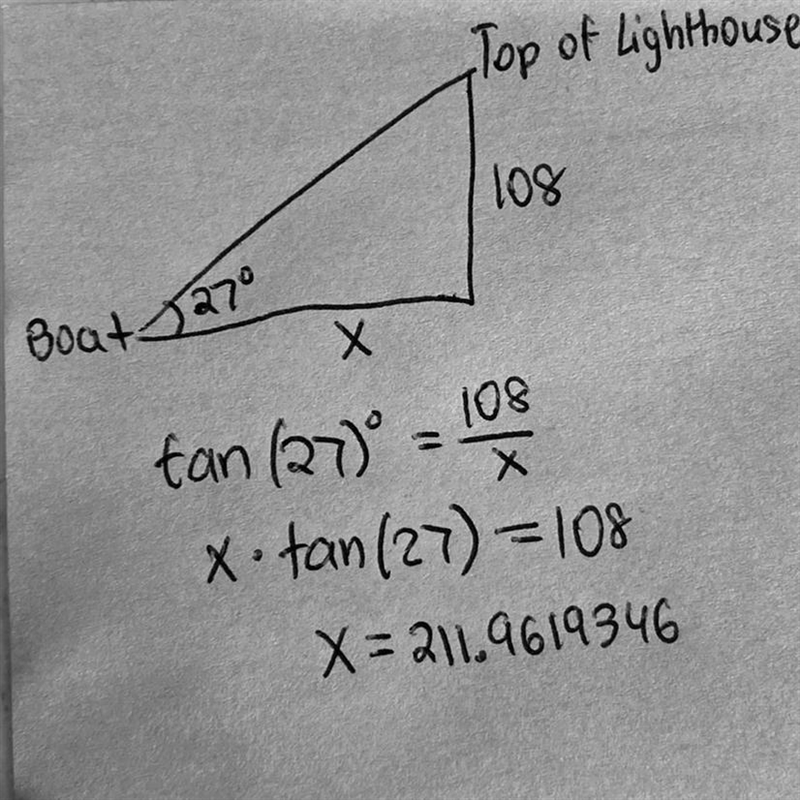 Top of Lighthouse
108
27°
Boat
X
tan (27)° = 108/x
x · tan(27) = 108
X = 211.9619346